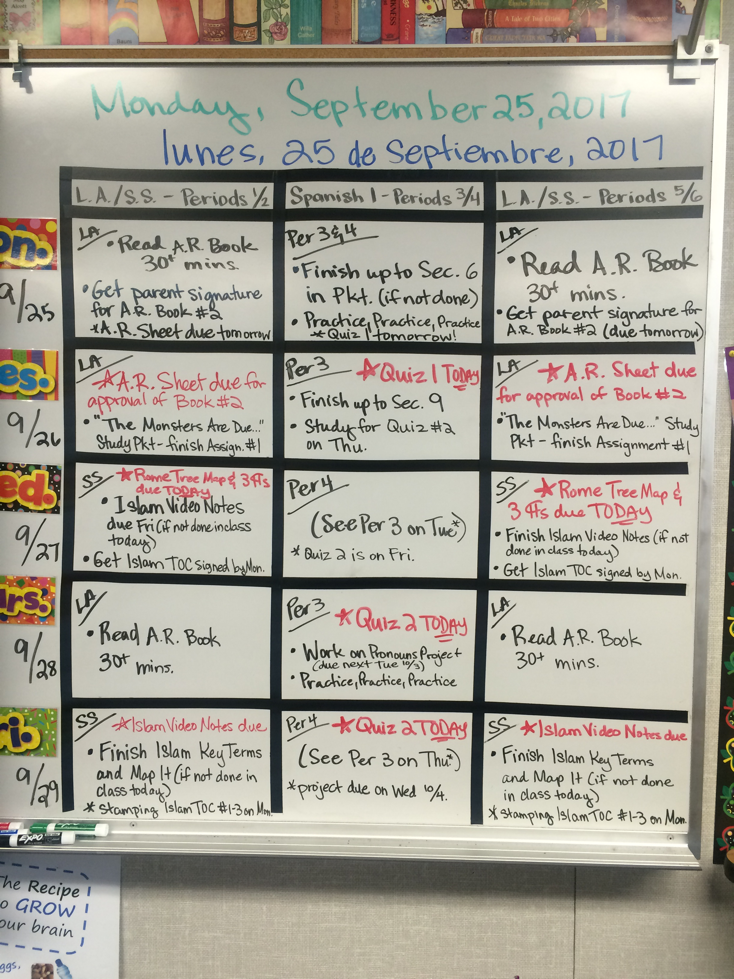 Monday, September 25, 2017
lunes, 25 de Septiembre, 2017
L.A./S.S. - Periods 1/2
Spanish 1 - Periods 3/4
L.A./S.S. - Periods 5/6
on.
9/25
LA
• Read A.R. Book
30+ mins.
• Get parent signature
for A.R. Book #2
*A.R. Sheet due tomorrow
Per 3 & 4
• Finish up to Sec. 6
in Pkt. (if not done)
• Practice, Practice, Practice
* Quiz 1 tomorrow!
LA
• Read A.R. Book
30+ mins.
• Get parent signature for
A.R. Book #2 (due tomorrow)
es.
9/26
LA
*A.R. Sheet due for
approval of Book #2
• "The Monsters Are Due..."
Study Pkt - finish Assign. #1
Per 3
* Quiz 1 TODAY
• Finish up to Sec. 9
• Study for Quiz #2
on Thu.
LA
* A.R. Sheet due
for approval of Book #2
• "The Monsters Are Due..." Study
Pkt - finish Assignment #1
ed.
9/27
SS
* Rome Tree Map & 3 ¶s
due TODAY
• Islam Video Notes
due Fri (if not done in class
today)
• Get Islam TOC signed by Mon.
Per 4
(See Per 3 on Tue*)
* Quiz 2 is on Fri.
SS
* Rome Tree Map &
3 ¶s due TODAY
• Finish Islam Video Notes (if not
done in class today)
• Get Islam TOC signed by Mon.
urs.
9/28
LA
• Read A.R. Book
30+ mins.
Per 3
* Quiz 2 TODAY
• Work on Pronouns Project
(due next Tue 10/3)
• Practice, Practice, Practice
LA
• Read A.R. Book
30+ mins.
ri.
9/29
SS
*Islam Video Notes due
• Finish Islam Key Terms
and Map It (if not done in
class today)
* Stamping Islam TOC #1-3 on Mon.
Per 4
* Quiz 2 TODAY
(See Per 3 on Thu*)
*project due on Wed 10/4.
SS
*Islam Video Notes due
• Finish Islam Key Terms
and Map It (if not done
in class today)
* Stamping Islam TOC #1-3 on Mon.
EXPO
The Recipe
o GROW
our brain
ggs,